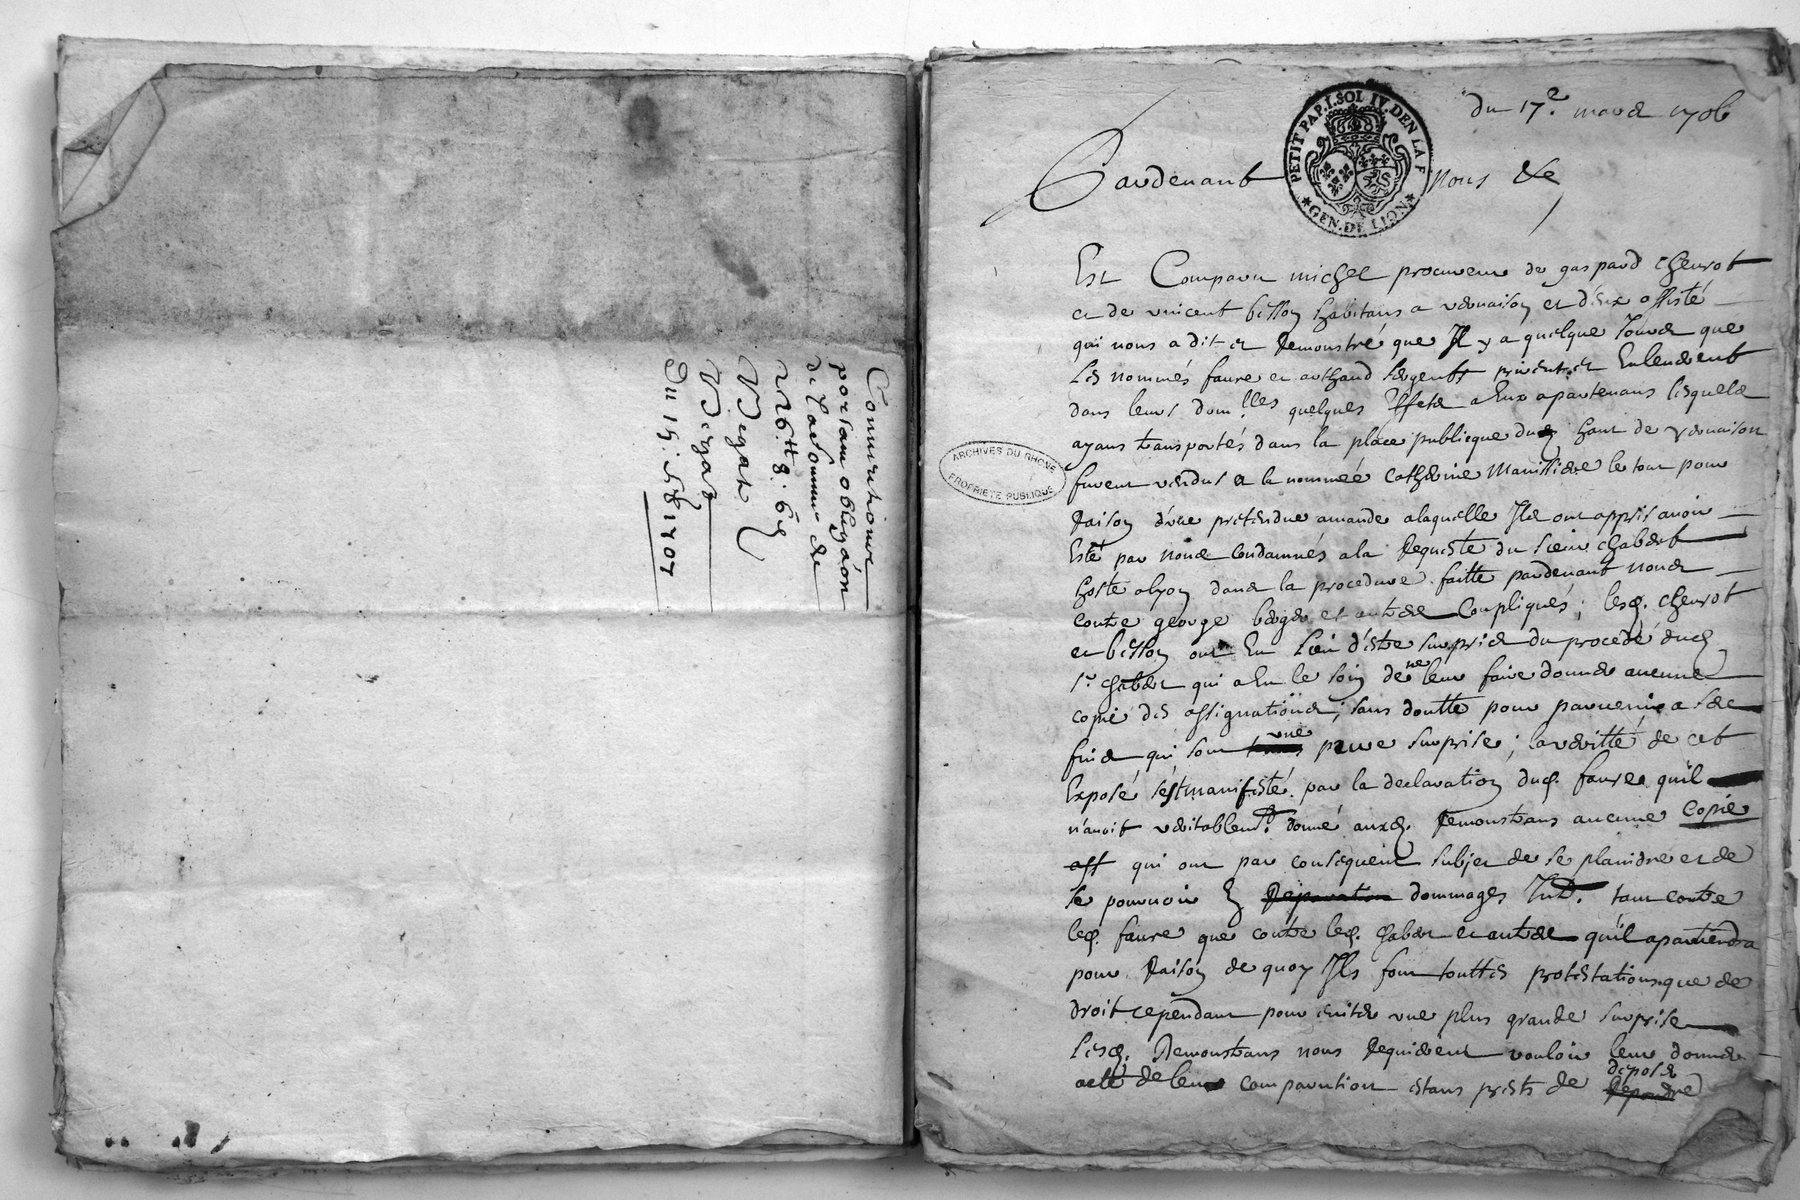 Conuentionor
portam obligaon
de la somme de
226 tt 8 s 6 d
Begat
du 15
1705
du 17e. mars 1706
PETIT PAP. I. SOL IV. DEN LA F
* GEN. DE LION *
Pardeuant nous &c
Est Comparu michel procureur de gaspard cheurot
et de vincent bisson habitans a vernaison et d'eux assisté
qui nous a dit et Remonstré que Il y a quelque Jours que
Les nommés faure et arthaud sergents prirent et Enleuerent
dans leurs domlles quelques Effets a Eux apartenans lesquels
ayans transportés dans la place publicque dud haut de vernaison
furent vendus a la nommée Catherine Manissiere le tout pour
Raison d'vne pretendue amande a laquelle Ils ont appris auoir
Esté par nous condamnés a la Requeste du sieur Chabert
hoste a lyon dans la procedure faitte pardeuant nous
contre george berger et autres Coupliqués ; lesd. cheurot
et bisson ont Eu Lieu d'estre surpris du procedé dud
sr. chabert qui a Eu le soin de ne leur faire donner aucune
copie des assignations ; sans doutte pour paruenir a ses
fins qui sont vne pure surprise ; la veritté de cet
Exposé s'est manifesté par la declaration dud. faure qu'il
n'auoit veritablemt. donné auxd. Remonstrans aucune Copie
ass qui ont par consequent subjet de se plaindre et de
se pouruoir En Reparation dommages Intts. tant contre
led. faure que contre led. chabert et autres qu'il apartiendra
pour Raison de quoy Ils font touttes protestations que de
droit cependant pour euiter vne plus grande surprise
Lesd. Remonstrans nous Requierent vouloir leur donner
acte de leur comparution estans prests de deposer Repondre
ARCHIVES DU RHONE
PROPRIETE PUBLIQUE